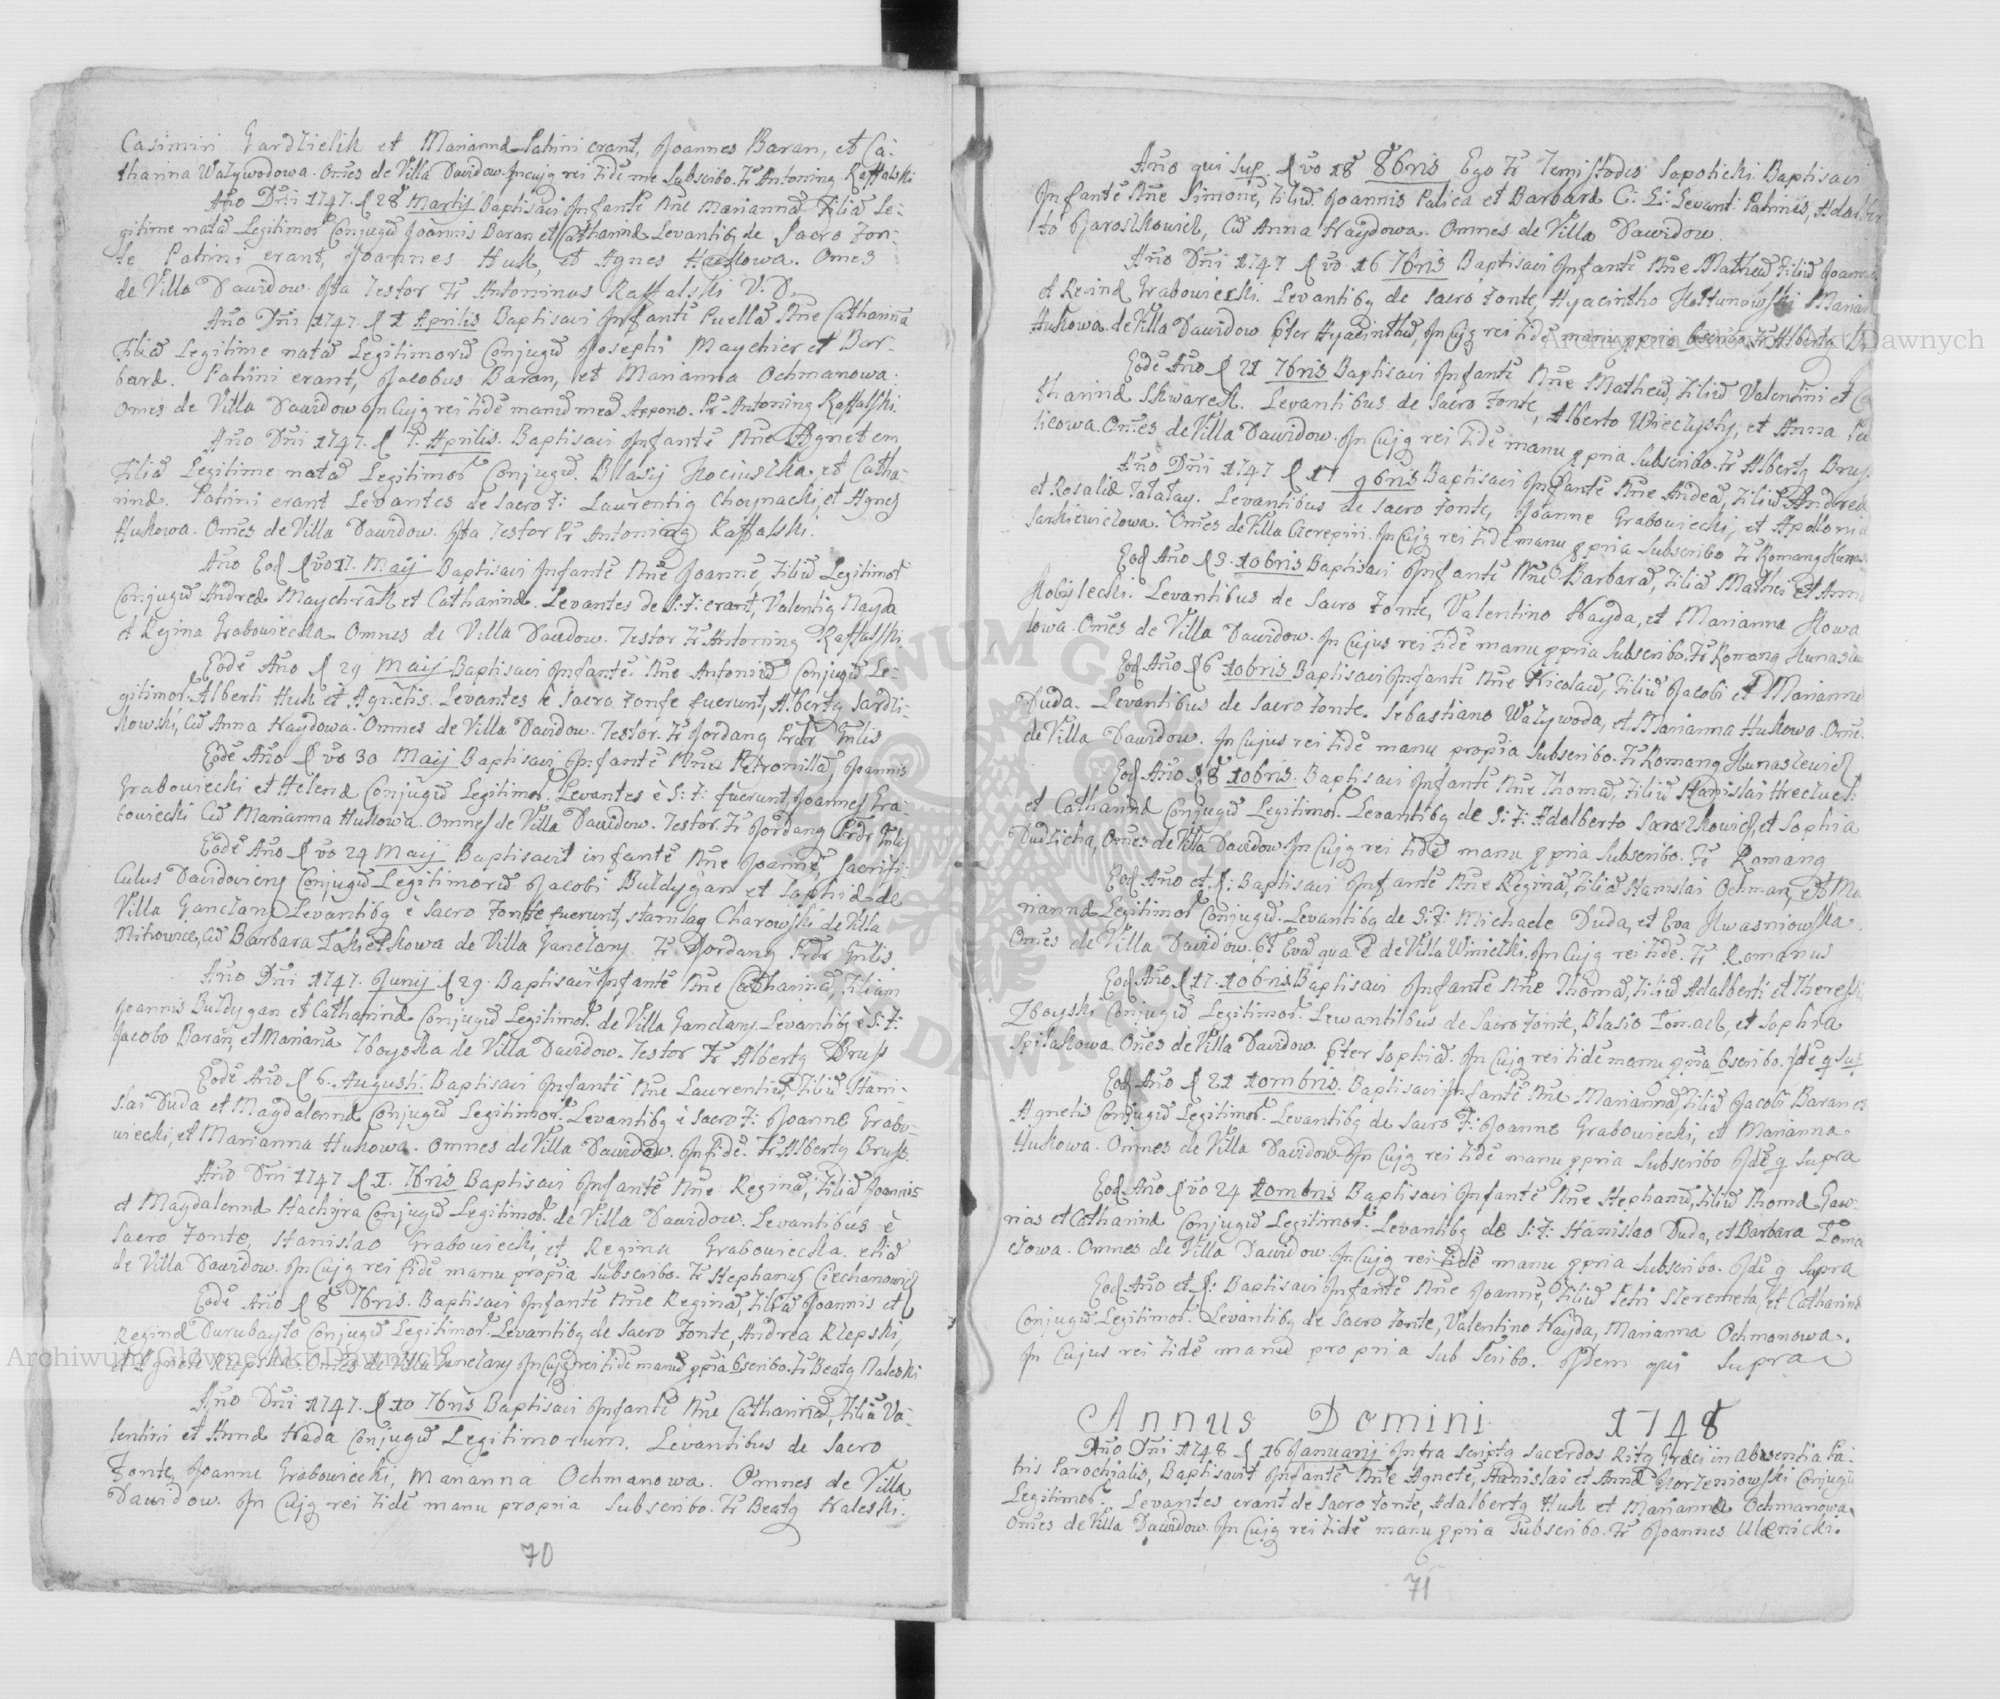 Casimiri Gardzielik et Mariannæ Patrini erant, Joannes Baran, et Ca-
tharina Watywodowa. Om̃es de Villa Dawidow. In cujq rei fidẽ me Subscribo. Fr Antoninq Raffalski
Año Dñi 1747. d 28 Martij Baptisavi Infantẽ Nñe Mariannã Filiã Le-
gitime natã Legitimor Conjugũ Joannis Baran et Catharinæ Levantibq de Sacro Fon-
te Patrini erant, Joannes Huk, et Agnes Huskowa. Omes
de Villa Dawidow. Ita Testor Fr Antoninus Raffalski V. D.
Año Dñi 1747. d 1 Aprilis Baptisavi Infantẽ Puellã Nñe Catharinã
Filiã Legitime natã Legitimorũ Conjugũ Josephi Maycher et Bar-
baræ. Patrini erant, Jacobus Baran, et Marianna Ochmanowa.
Omes de Villa Dawidow In Cujq rei fidẽ manũ meã Appono. Fr Antoninq Raffalski.
Año Dñi 1747. d 7. Aprilis. Baptisavi Infantẽ Nñe Agnetem
Filiã Legitime natã Legitimor Conjugũ. Blasij Kociuszka et Catha-
rinæ. Patrini erant Levantes de Sacro F: Laurentiq Choynacki, et Agnes
Hukowa. Om̃es de Villa Dawidow. Ita Testor Fr Antoninq Raffalski.
Año Eod d vo 17. Maij Baptisavi Infantẽ Nñe Joannẽ, Filiũ Legitimor
Conjugũ Andreæ Maychrak et Catharinæ. Levantes de S: F: erant, Valentiq Nayda
et Regina Grabowiecka Omnes de Villa Dawidow. Testor Fr Antoninq Raffalski.
Eodẽ Año d 29 Maij Baptisavi Infantẽ. Nñe Antoniũ Conjugũ Le-
gitimor. Alberti Huk et Agnetis. Levantes è Sacro Fonte fuerunt, Albertq Sardzi-
kowski, cũ Anna Haydowa. Omnes de Villa Dawidow. Testor. Fr Jordanq
Eodẽ Año d vo 30 Maij Baptisavi Infantẽ Nñe Petronillã, Joannis
Grabowiecki et Helenæ Conjugũ Legitimor. Levantes è S: F: fuerunt, Joannes Gra-
bowiecki cũ Marianna Hukowa. Omnes de Villa Dawidow. Testor. Fr Jordanq
Eodẽ Año d vo 24 Maij Baptisavit infantẽ Nñe Joannẽ, Sacrifi-
culus Davidoviens Conjugũ Legitimorũ Jacobi Buldygan et Sophiæ de
Villa Ganczary Levantibq è Sacro Fonte fuerunt, Stanislaq Charowski de Villa
cũ Barbara de Villa Ganczary. Fr Jordanq
Año Dñi 1747. Junij d 29. Baptisavi Infantẽ Nñe Catharinã, Filiam
Joannis Buldygan et Catharinæ Conjugũ Legitimor. de Villa Ganczary. Levantibq è S: F:
Jacobo Baran, et Mariana Zboyska de Villa Dawidow. Testor Fr Albertq Bruss
Eodẽ Año d 6. Augusti. Baptisavi Infantẽ Nñe Laurentiũ, Filiũ Stani-
slai Duda et Magdalenæ Conjugũ Legitimor. Levantibq è Sacro F: Joanne Grabo-
wiecki, et Marianna Hukowa. Omnes de Villa Dawidow. In fidẽ. Fr Albertq Bruss.
Año Dñi 1747 d 1. 7bris Baptisavi Infantẽ Nñe Reginã, Filiã Joannis
et Magdalenæ Stachyra Conjugũ Legitimor. de Villa Dawidow. Levantibus è
Sacro Fonte, Stanislao Grabowiecki, et Regina Grabowiecka. etiã
de Villa Dawidow. In Cujq rei fidẽ manu propria Subscribo. Fr Stephanq Ciechanowicz
Eodẽ Año d 8 7bris. Baptisavi Infantẽ Nñe Reginã, Filiã Joannis et
Reginæ Durubayło Conjugũ Legitimor. Levantibq de Sacro Fonte, Andrea Rzepski,
et Agnete Rzepska. Om̃es de Villa Ganczary In Cujq rei fidẽ manũ ppriã sbscribo. Fr Beatq Naleski
Año Dñi 1747. d 10 7bris Baptisavi Infantẽ Nñe Catharinã, Filiã Va-
lentini et Annæ Hada Conjugũ Legitimorum. Levantibus de Sacro
Fonte, Joanne Grabowiecki, Marianna Ochmanowa. Omnes de Villa
Dawidow. In Cujq rei fidẽ manu propria Subscribo. Fr Beatq Naleski.
70
Año qui sup. d vo 18 8bris Ego Fr Temistocles Sapoticki Baptisavi
Infantẽ Nñe Simonẽ, Filiũ Joannis Palica et Barbaræ C: L: Levant: Patrinis, Adalber
to Jaroszkowicz, cũ Anna Haydowa. Omnes de Villa Dawidow.
Año Dñi 1747 d vo 16 7bris Baptisavi Infantẽ Nñe Matheũ Filiũ Joannis
et Reginæ Grabowiecki. Levantibq de Sacro Fonte, Hyacintho Kaltunowski Marian
Hukowa. de Villa Dawidow pter Hyacinthũ, In Cujq rei fidẽ manu ppria sbscribo. Fr Albertq
Eodẽ Año d 21 7bris Baptisavi Infantẽ Nñe Matheũ, Filiũ Valentini et Ca
tharinæ Skwarek. Levantibus de Sacro Fonte, Alberto et Anna Pa
licowa. Om̃es de Villa Dawidow. In Cujq rei fidẽ manu ppria Subscribo. Fr Albertq Brus
Año Dñi 1747 d 17 9bris Baptisavi Infantẽ Nñe Andreã, Filiũ Andreæ
et Rosaliæ Tatatay. Levantibus de Sacro Fonte, Joanne Grabowiecki, et Apollonia
Sankiewiczowa. Om̃es de Villa Czerepin. In Cujq rei fidẽ manu ppria Subscribo Fr Romanq Kunas
Eod Año d 3. 10bris Baptisavi Infantẽ Nñe Barbarã, Filiã Mathei et Annæ
Kobylecki. Levantibus de Sacro Fonte, Valentino Hayda, et Marianna Kowa
lowa. Om̃es de Villa Dawidow. In Cujus rei fidẽ manu ppria Subscribo. Fr Romanq Kunasze
Eod Año d 6 10bris Baptisavi Infantẽ Nñe Nicolaũ, Filiũ Jacobi et Mariannæ
Duda. Levantibus de Sacro Fonte. Sebastiano Watywoda, et Marianna Hukowa. Om̃e.
de Villa Dawidow. In Cujus rei fidẽ manu propria Subscribo. Fr Romanq Kunaszewicz
Eod Año d 8 10bris. Baptisavi Infantẽ Nñe Thomã, Filiũ Stanislai Hreczuch
et Catharinæ Conjugũ Legitimor. Levantibq de S: F: Adalberto Jaroszkowicz, et Sophia
Dudzicha, Om̃es de Villa Dawidow In Cujq rei fidẽ manu ppria Subscribo. Fr Romanq
Eod Año et d: Baptisavi Infantẽ Nñe Reginã, Filiã Stanislai Ochman, et Ma
riannæ Legitimor Conjugũ. Levantibq de S: F: Michaele Duda, et Eva Kwasniowska.
Om̃es de Villa Dawidow. pt Evã qua ẽ de Villa Winiczki. In Cujq rei fidẽ. Fr Romanus
Eod Año d 17. 10bris Baptisavi Infantẽ Nñe Thomã, Filiũ Adalberti et Theressiæ
Zboyski Conjugũ Legitimor. Levantibus de Sacro Fonte, Blasio Tomacz, et Sophia
Spilakowa. Om̃es de Villa Dawidow. pter Sophiã. In Cujq rei fidẽ manu ppria sbscribo. Idẽ q Sup
Eod Año d 21 10mbris. Baptisavi Infantẽ Nñe Mariannã, Filiã Jacobi Baran et
Agnetis Conjugũ Legitimor. Levantibq de Sacro F: Joanne Grabowiecki, et Marianna
Hukowa. Omnes de Villa Dawidow In Cujq rei fidẽ manu ppria Subscribo Idẽ q Supra
Eod Año d vo 24 10mbris Baptisavi Infantẽ Nñe Stephanũ, Filiũ Thomæ Gaw-
rias et Catharinæ Conjugũ Legitimor. Levantibq de S: F: Stanislao Duda, et Barbara Toma
czowa. Omnes de Villa Dawidow. In Cujq rei fidẽ manu ppria Subscribo. Idẽ q Supra
Eod Año et d: Baptisavi Infantẽ Nñe Joannẽ, Filiũ Petri Szeremeta, et Catharinæ
Conjugũ Legitimor. Levantibq de Sacro Fonte, Valentino Hayda, Marianna Ochmonowa.
In Cujus rei fidẽ manũ propria Subscribo. Idem qui Supra
Annus Domini 1748
Año Dñi 1748 d 16 Januarij Infra scriptq Sacerdos Ritq Græci in absentia Pa-
tris Parochialis, Baptisavit Infantẽ Nñe Agnetẽ, Stanislai et Annæ Korzeniowski Conjugũ
Legitimor. Levantes erant de Sacro Fonte, Adalbertq Huk et Marianna Ochmanowa
Om̃es de Villa Dawidow. In Cujq rei fidẽ manu ppria Subscribo. Fr Joannes Ulenicki.
71
Archiwum Główne Akt Dawnych
Archiwum Główne Akt Dawnych
ARCHIWUM GŁÓWNE AKT DAWNYCH